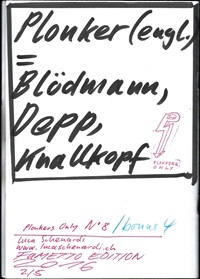 Plonker (engl.)
=
Blödmann,
Depp,
Knallkopf
PLONKERS
ONLY
Plonkers Only N°8 / bonus 4
Luca Schenardi
www.lucaschenardi.ch
FUMETTO EDITION
2016
2/5